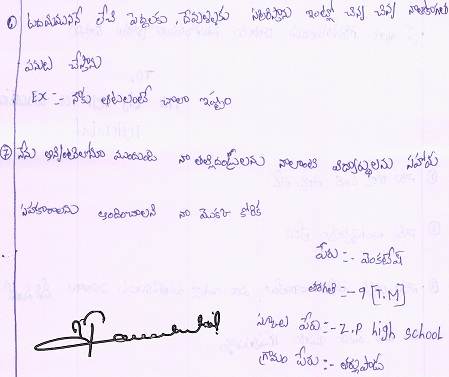 ⑥ ఉదయముననే లేచి పెద్దలకు, దేవుళ్ళకు నమస్కరిస్తాను ఇంట్లో చిన్న చిన్న
పనులు చేస్తాను
EX :- నాకు ఆటలంటే చాలా ఇష్టం
⑦ నేను అన్నింటిలోనూ ముందుండి నా తల్లిదండ్రులను నాలాంటి విద్యార్థులను సహాయ
సహకారాలను అందించాలని నా మొక్క కోరిక
పేరు :- వెంకటేష్
తరగతి :- 9 [T.M]
స్కూలు పేరు :- Z.P high school
గ్రామం పేరు :-